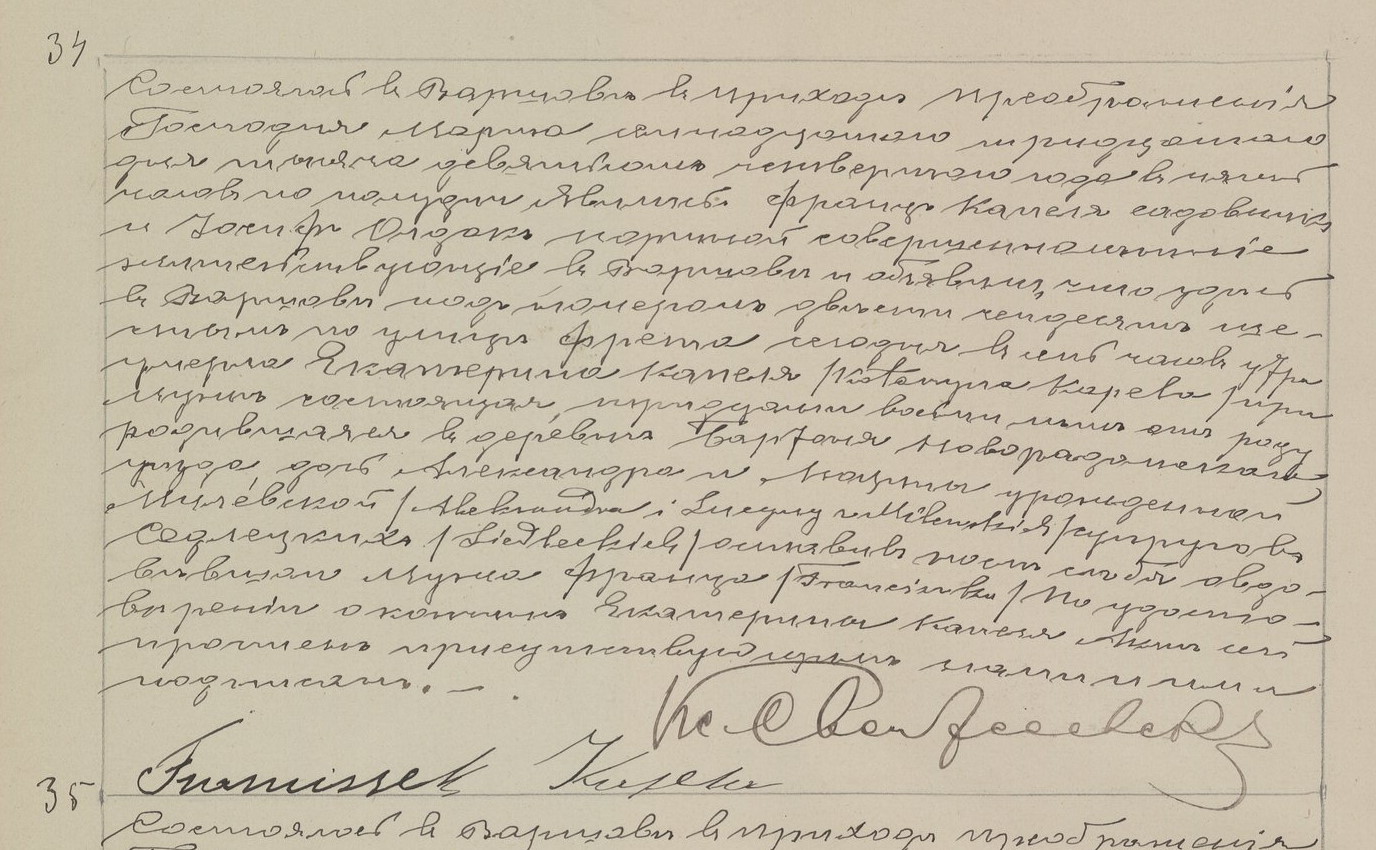 34
Состоялось въ Варшавѣ въ приходѣ Преображенія
Господня Марта семнадцатаго тридцатаго
дня тысяча девятьсотъ четвертаго года въ пять
часовъ по полудни. Явились: Францъ Капеля садовникъ
и Іосифъ Олдакъ портной совершеннолѣтніе
жительствующіе въ Варшавѣ и объявили, что здѣсь
въ Варшавѣ подъ номеромъ двѣсти семдесятъ ше-
стымъ по улицѣ Фрета сегодня въ семь часовъ утра
умерла Екатерина Капеля /Katarzyna Kapela/ при
мужѣ состоящая, тридцати восьми лѣтъ отъ роду
родившаяся въ деревнѣ Новорадомскаго
уѣзда, дочь Александра и Люцины урожденной
Милевской /Aleksandra i Lucyny z Milewskich/ супруговъ
Седлецкихъ /Siedleckich/ оставивъ послѣ себя овдо-
вѣвшаго мужа Франца /Franciszka/ По удосто-
вѣреніи о кончинѣ Екатерины Капеля Актъ сей
прочтенъ присутствующимъ нами и ими
подписанъ. —
Кс.
Franciszek Kapela
35
Состоялось въ Варшавѣ въ приходѣ Преображенія